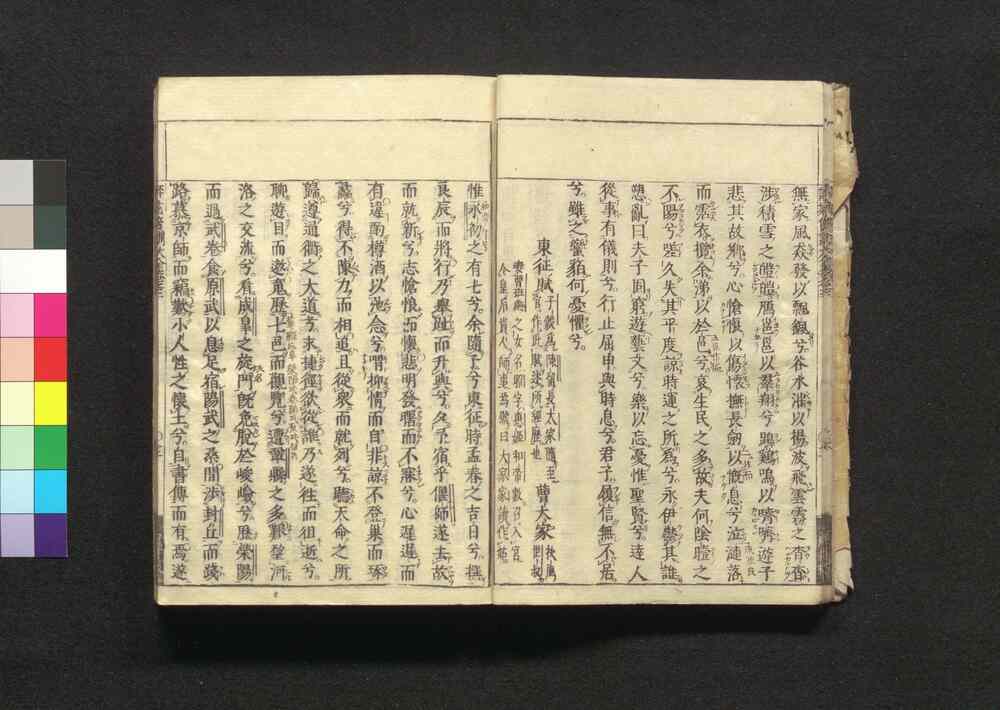 無家風猋發以飄颻兮谷水灌以揚波飛雲霧之杳杳
涉積雪之皚皚鴈邕邕以羣翔兮鵾鷄鳴以嚌嚌遊子
悲其故鄉兮心愴悢以傷懷撫長劒以慨息兮泣漣落
而霑衣攬余涕以於邑兮哀生民之多故夫何陰曀之
不陽兮嗟久失其平度諒時運之所爲兮永伊鬱其誰
愬亂曰夫子固窮遊藝文兮樂以忘憂惟聖賢兮達人
從事有儀則兮行止屈申與時息兮君子履信無不居
兮雖之蠻貊何憂懼兮
東征賦 曹大家
惟永初之有七兮余隨子兮東征時孟春之吉日兮撰
良辰而將行乃舉趾而升輿兮夕予宿乎偃師遂去故
而就新兮志愴悢而懷悲明發曙而不寐兮心遲遲而
有違酌樽酒以弛念兮喟抑情而自非諒不登巢而椓
蠡兮得不陳力而相追且從衆而就列兮聽天命之所
歸遵通衢之大道兮求捷徑欲從誰乃遂往而徂逝兮
聊遊目而遨魂歷七邑而觀覽兮遭鞏縣之多艱望河
洛之交流兮看成皐之旋門既免脫於峻嶮兮歷滎陽
而過武卷食原武以息足宿陽武之桑間涉封丘而踐
路慕京師而竊歎小人性之懷土兮自書傳而有焉遂